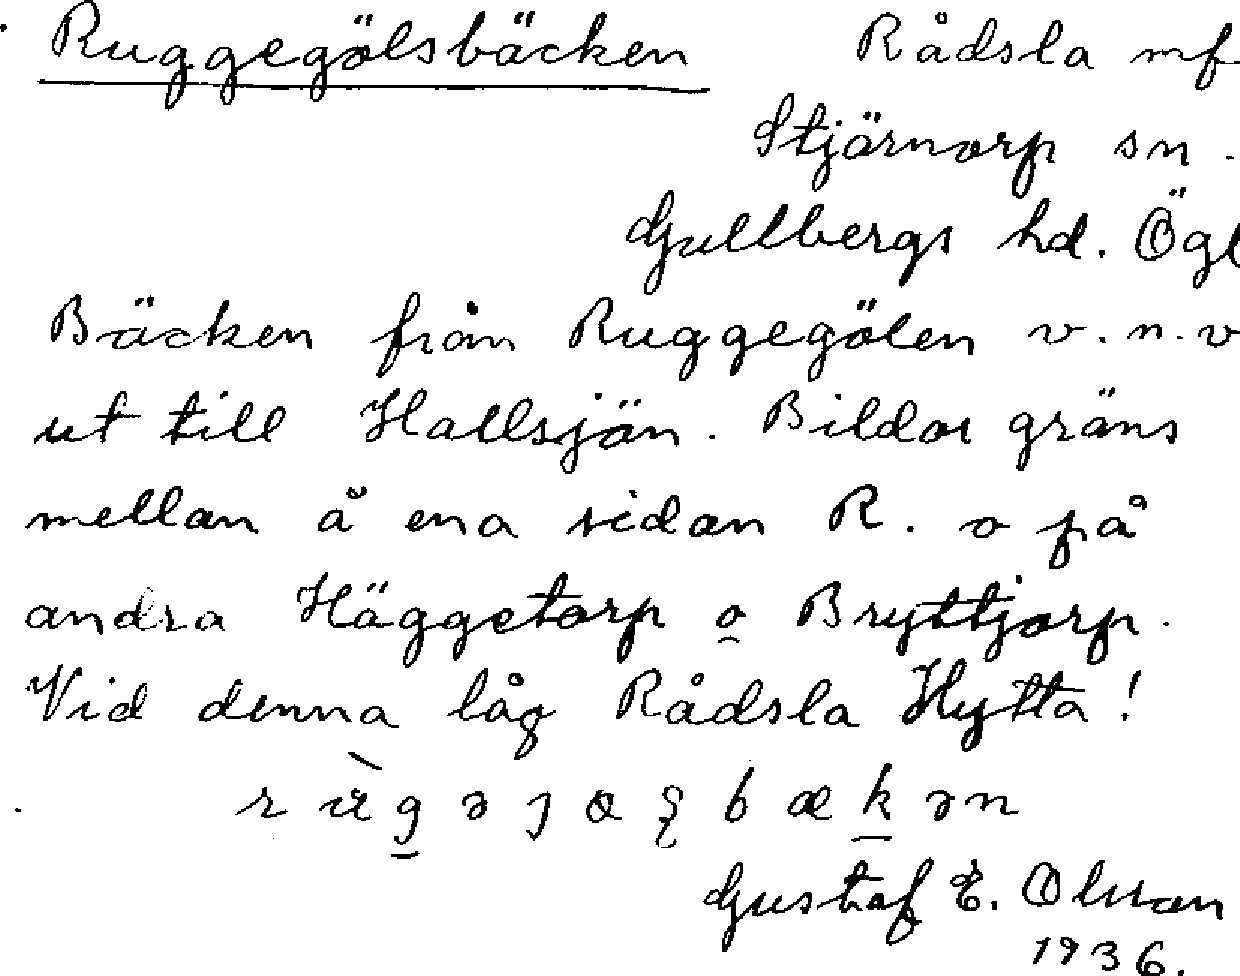 Ruggegölsbäcken Rådsla mf
Stjärnorp sn.
Gullbergs hd. Ögl
Bäcken från Ruggegölen v.n.v
ut till Hallsjön. Bildar gräns
mellan å ena sidan R. o på
andra Häggetorp o Bryttjorp.
Vid denna låg Rådsla Hytta!
Gustaf E. Olsson
1936.